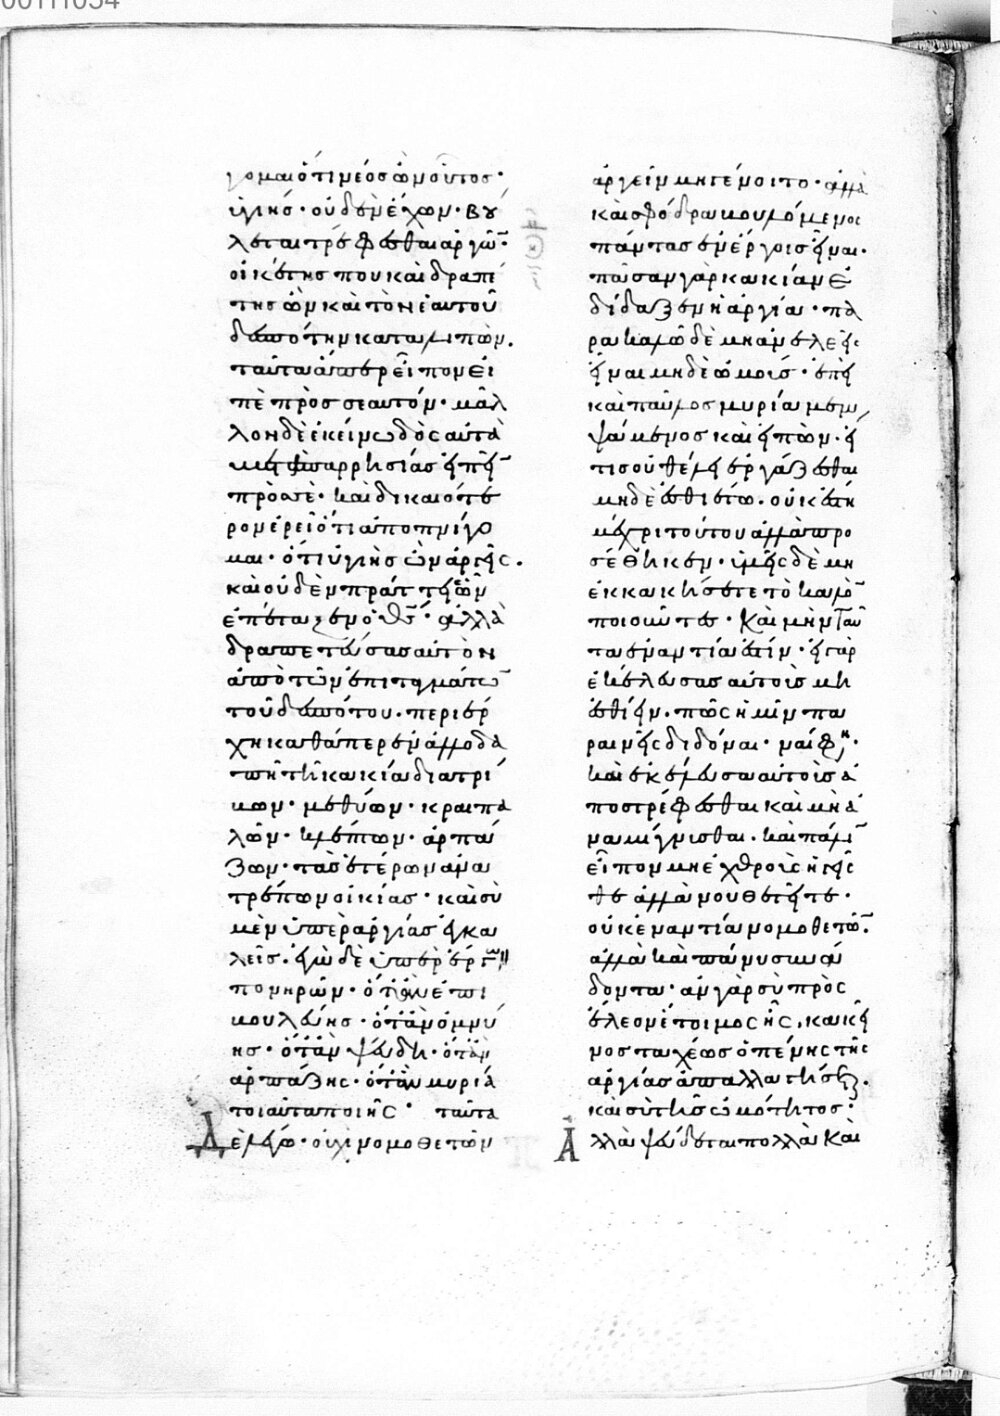 γομαι ὅτι νέος ὢν οὗτος·
ὑγιὴς· οὐδὲν ἔχων· βού
λεται τρέφεσθαι ἀργῶν·
οἰκέτης που καὶ δραπέ
της ὢν καὶ τὸν ἑαυτοῦ
δεσπότην καταλιπών.
ταῦτα ἅπερ εἶπον εἰ
πὲ πρὸς σεαυτόν· μᾶλ
λον δὲ ἐκείνω δὸς αὐτὰ
μετὰ παρρησίας εἰπεῖν
πρὸς σὲ· καὶ δικαιότε
ρον ἐρεῖ ὅτι ἀποπνίγο
μαι· ὅτι ὑγιὴς ὢν ἀργεῖς.
καὶ οὐδὲν πράττεις ὧν
ἐπέταξεν ὁ θς· ἀλλὰ
δραπετεύσας αὐτὸν
ἀπὸ τῶν ἐπιταγμάτων
τοῦ δεσπότου. περιέρ
χη καθάπερ ἐν ἀλλοδα
πῆ τῆ κακία διατρί
βων· μεθύων· κραιπα
λῶν· κλέπτων· ἁρπά
ζων· τὰς ἑτέρων ἀνα
τρέπων οἰκίας· καὶ σὺ
μὲν ὑπὲρ ἀργίας ἐγκα
λεῖς. ἐγὼ δὲ ὑπὲρ ἔργων
πονηρῶν· ὅταν ἐπι
βουλεύης· ὅταν ὀμνύ
ης· ὅταν ψεύδη· ὅταν
ἁρπάζης· ὅταν μυρία
τοιαῦτα ποιῆς· ταῦτα
Δὲ λέγω· οὐχὶ νομοθετῶν
ἀργεῖν μὴ γένοιτο· ἀλλὰ
καὶ σφόδρα βουλόμενος
πάντας ἐν ἔργοις εἶναι·
πᾶσαν γὰρ κακίαν ἐ
δίδαξεν ἡ ἀργία· πα
ρακαλῶ δὲ μὴ ἀνελεεῖς
εἶναι μηδὲ ὠμούς· ἐπεὶ
καὶ παῦλος μυρία μεμ
ψάμενος καὶ εἰπὼν· εἴ
τις οὐ θέλει ἐργάζεσθαι
μηδὲ ἐσθιέτω. οὐκ ἔστη
μέχρι τούτου ἀλλὰ προ
σέθηκεν· ὑμεῖς δὲ μὴ
ἐκκακήσητε τὸ καλὸν
ποιοῦντες· Καὶ μὴν ταῦ
τα ἐναντία ἐστίν· εἰ γὰρ
ἐκέλευσας αὐτοῖς μὴ
ἐσθίειν. πῶς ἡμῖν πα
ραινεῖς διδόναι· ναί φησιν·
καὶ ἐκέλευσα αὐτοῖς ἀ
ποστρέφεσθαι καὶ μὴ ἀ
ναμίγνυσθαι. καὶ πάλιν
εἶπον μὴ ἐχθροὺς ἡγεῖσ
θε ἀλλὰ νουθετεῖτε·
οὐκ ἐναντία νομοθετῶν·
ἀλλὰ καὶ πάνυ συνά
δοντα· ἂν γὰρ σὺ πρὸς
ἔλεον ἕτοιμος ῆς, κακεῖ
νος ταχέως ὁ πένης τῆς
ἀργίας ἀπαλλαγήσεται.
καὶ σὺ τῆς ὠμότητος·
Ἀλλὰ ψεύδεται πολλὰ καὶ